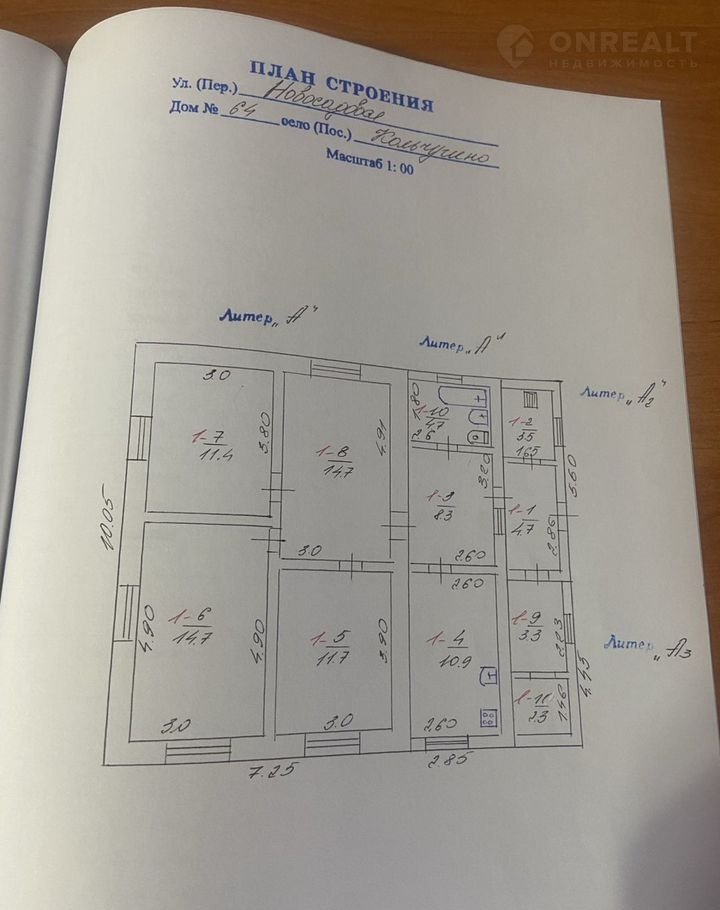 ONREALT
НЕДВИЖИМОСТЬ
ПЛАН СТРОЕНИЯ
Ул. (Пер.) Новосадовая
Дом № 64 село (Пос.) Кольчугино
Масштаб 1: 00
Литер „А"
Литер „А'"
Литер „А2"
Литер „А3
3.0
1-7
11.4
3.80
1-8
14.7
4.91
3.0
1.80
1-10
4.7
2.6
1-2
3.5
1.65
3.20
1-3
8.3
2.60
1-1
4.7
2.86
5.60
10.05
4.90
1-6
14.7
4.90
3.0
1-5
11.7
3.90
3.0
2.60
1-4
10.9
2.60
1-9
3.3
2.03
1-11
2.3
1.46
4.45
7.25
2.85